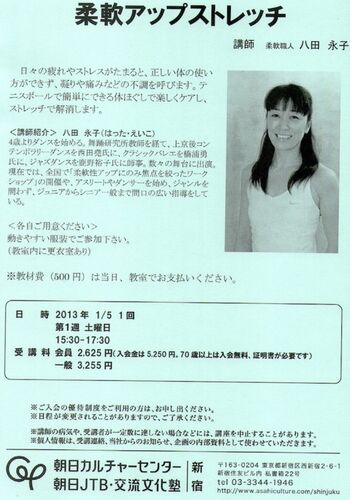 柔軟アップストレッチ
講師 柔軟職人 八田 永子
日々の疲れやストレスがたまると、正しい体の使い
方ができず、凝りや痛みなどの不調を呼びます。テ
ニスボールで簡単にできる体ほぐしで楽しくケアし、
ストレッチで解消します。
＜講師紹介＞ 八田 永子(はった・えいこ)
4歳よりダンスを始める。舞踊研究所教師を経て、上京後コン
テンポラリーダンスを西田堯氏に、クラシックバレエを楠浦勇
氏に、ジャズダンスを鹿野裕子氏に師事。数々の舞台に出演。
現在では、全国で「柔軟性アップにのみ焦点を絞ったワーク
ショップ」の開催や、アスリートやダンサーを始め、ジャンルを
問わず、ジュニアからシニア一般まで間口の広い指導をして
いる。
＜各自ご用意ください＞
動きやすい服装でご参加下さい。
(教室内に更衣室あり)
※教材費(500 円)は当日、教室でお支払いください。
日 時 2013 年 1/5 1 回
第1週 土曜日
15:30-17:30
受 講 料 会員 2,625 円(入会金は 5,250 円。70 歳以上は入会無料、証明書が必要です)
一般 3,255 円
※ご入会の優待制度をご利用の方は、お申し出ください。
※日程が変更されることがありますので、ご了承ください。
※講師の病気や、受講者が一定数に達しない場合などには、講座を中止することがあります。
※個人情報は、受講連絡、当社からのお知らせ、企画の内部資料として使わせていただきます。
朝日カルチャーセンター 新
朝日JTB・交流文化塾 宿
〒163-0204 東京都新宿区西新宿2-6-1
新宿住友ビル内 私書箱22号
tel 03-3344-1946
http://www.asahiculture.com/shinjuku